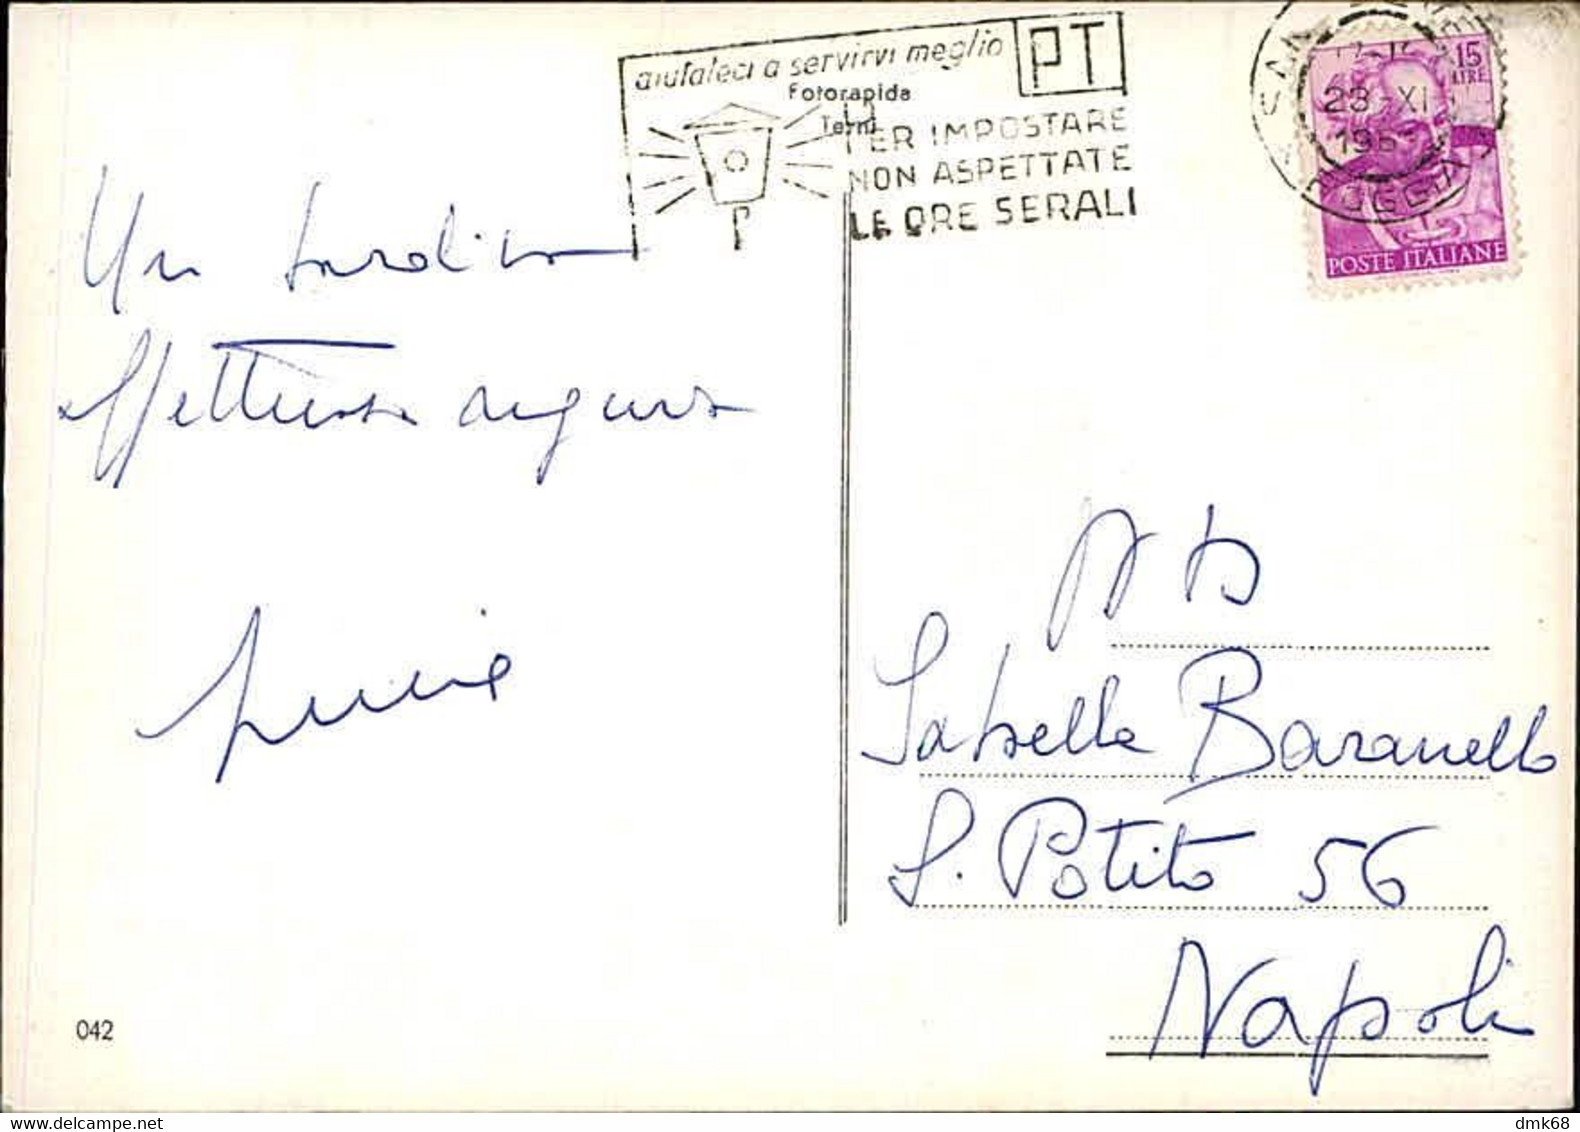 aiutateci a servirvi meglio
PT
Fotorapida
Terni
PER IMPOSTARE
NON ASPETTATE
LE ORE SERALI
SAN
23 XI
196
FOGGIA
15
LIRE
POSTE ITALIANE
Un tardivo
affettuoso augurio
Isabella Baranello
S. Potito 56
Napoli
042
dmk68